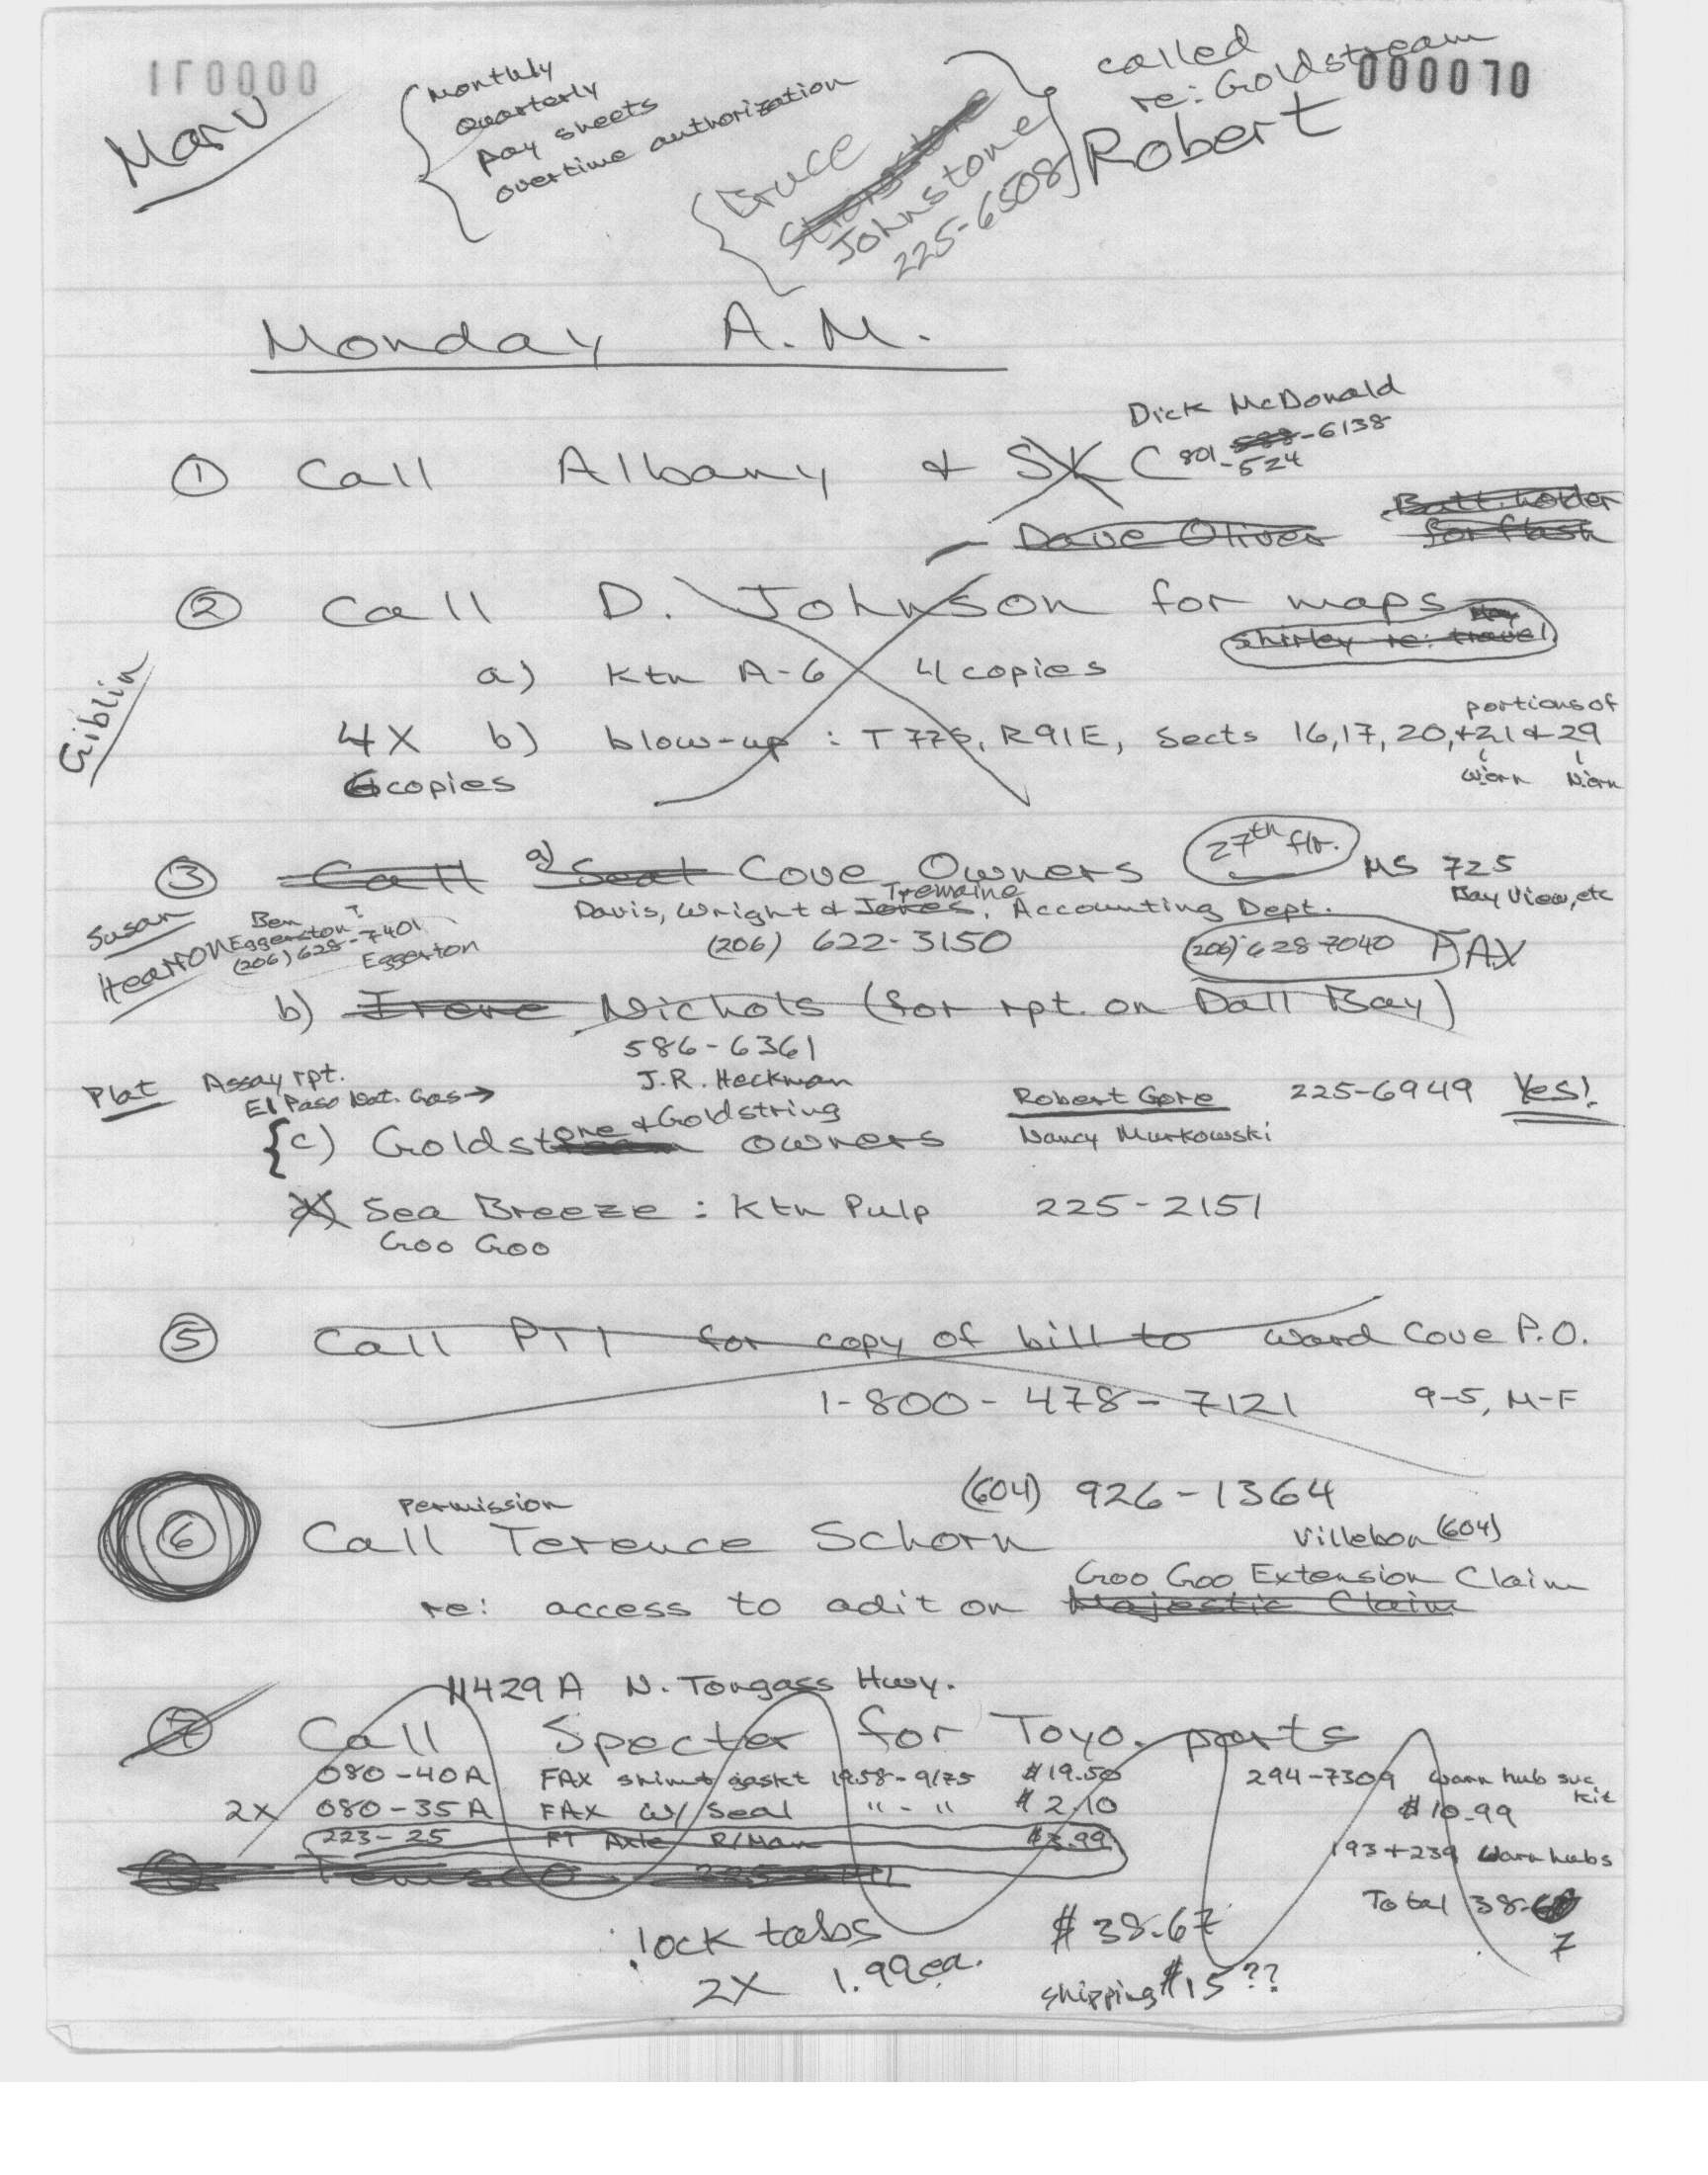 000070
Marv
monthly
quarterly
pay sheets
overtime authorization
Bruce
Johnstone
225-6508
called
re: Goldstream
Robert
Monday A.M.
Dick McDonald
① Call Albany & SK C 801-588-6138
-524
Dave Oliver
Batt. holder
for flash
② Call D. Johnson for maps
Shirley re: travel
a) Ktn A-6 4 copies
Giblin
portions of
4X b) blow-up: T77S, R91E, Sects 16, 17, 20, +21 & 29
copies
③ Call a) Seal Cove Owners 27th flr. MS 725
Bay View, etc
Davis, Wright & Jones, Tremaine Accounting Dept.
Susan
Hearron
Ben
Eggerston?
(206) 628-7401
Eggerton
(206) 622-3150
(206) 628-7040 FAX
b) Irene Nichols (for rpt. on Dall Bay)
586-6361
J.R. Heckman
Plat
Assay rpt.
El Paso Nat. Gas →
Robert Gore 225-6949 Yes!
Nancy Murkowski
c) Goldstone & Goldstring owners
d) Sea Breeze: Ktn Pulp 225-2151
Goo Goo
⑤ Call PTI for copy of bill to Ward Cove P.O.
1-800-478-7121 9-5, M-F
(604) 926-1364
permission
⑥ Call Terence Schorn
Villebon (604)
Goo Goo Extension Claim
re: access to adit on Majestic Claim
11429A N. Tongass Hwy.
⑦ Call Specter for Toyo. parts
080-40A FAX shim & gaskt 1958-9/75 $19.50
294-7309 Warn hub svc kit
$10.99
2X 080-35A FAX w/ seal " - " $2.10
223-25 FT Axle $3.99
193+239 Warn hubs
Total 38.67
lock tabs
2X 1.99 ea.
$38.67
shipping $15??